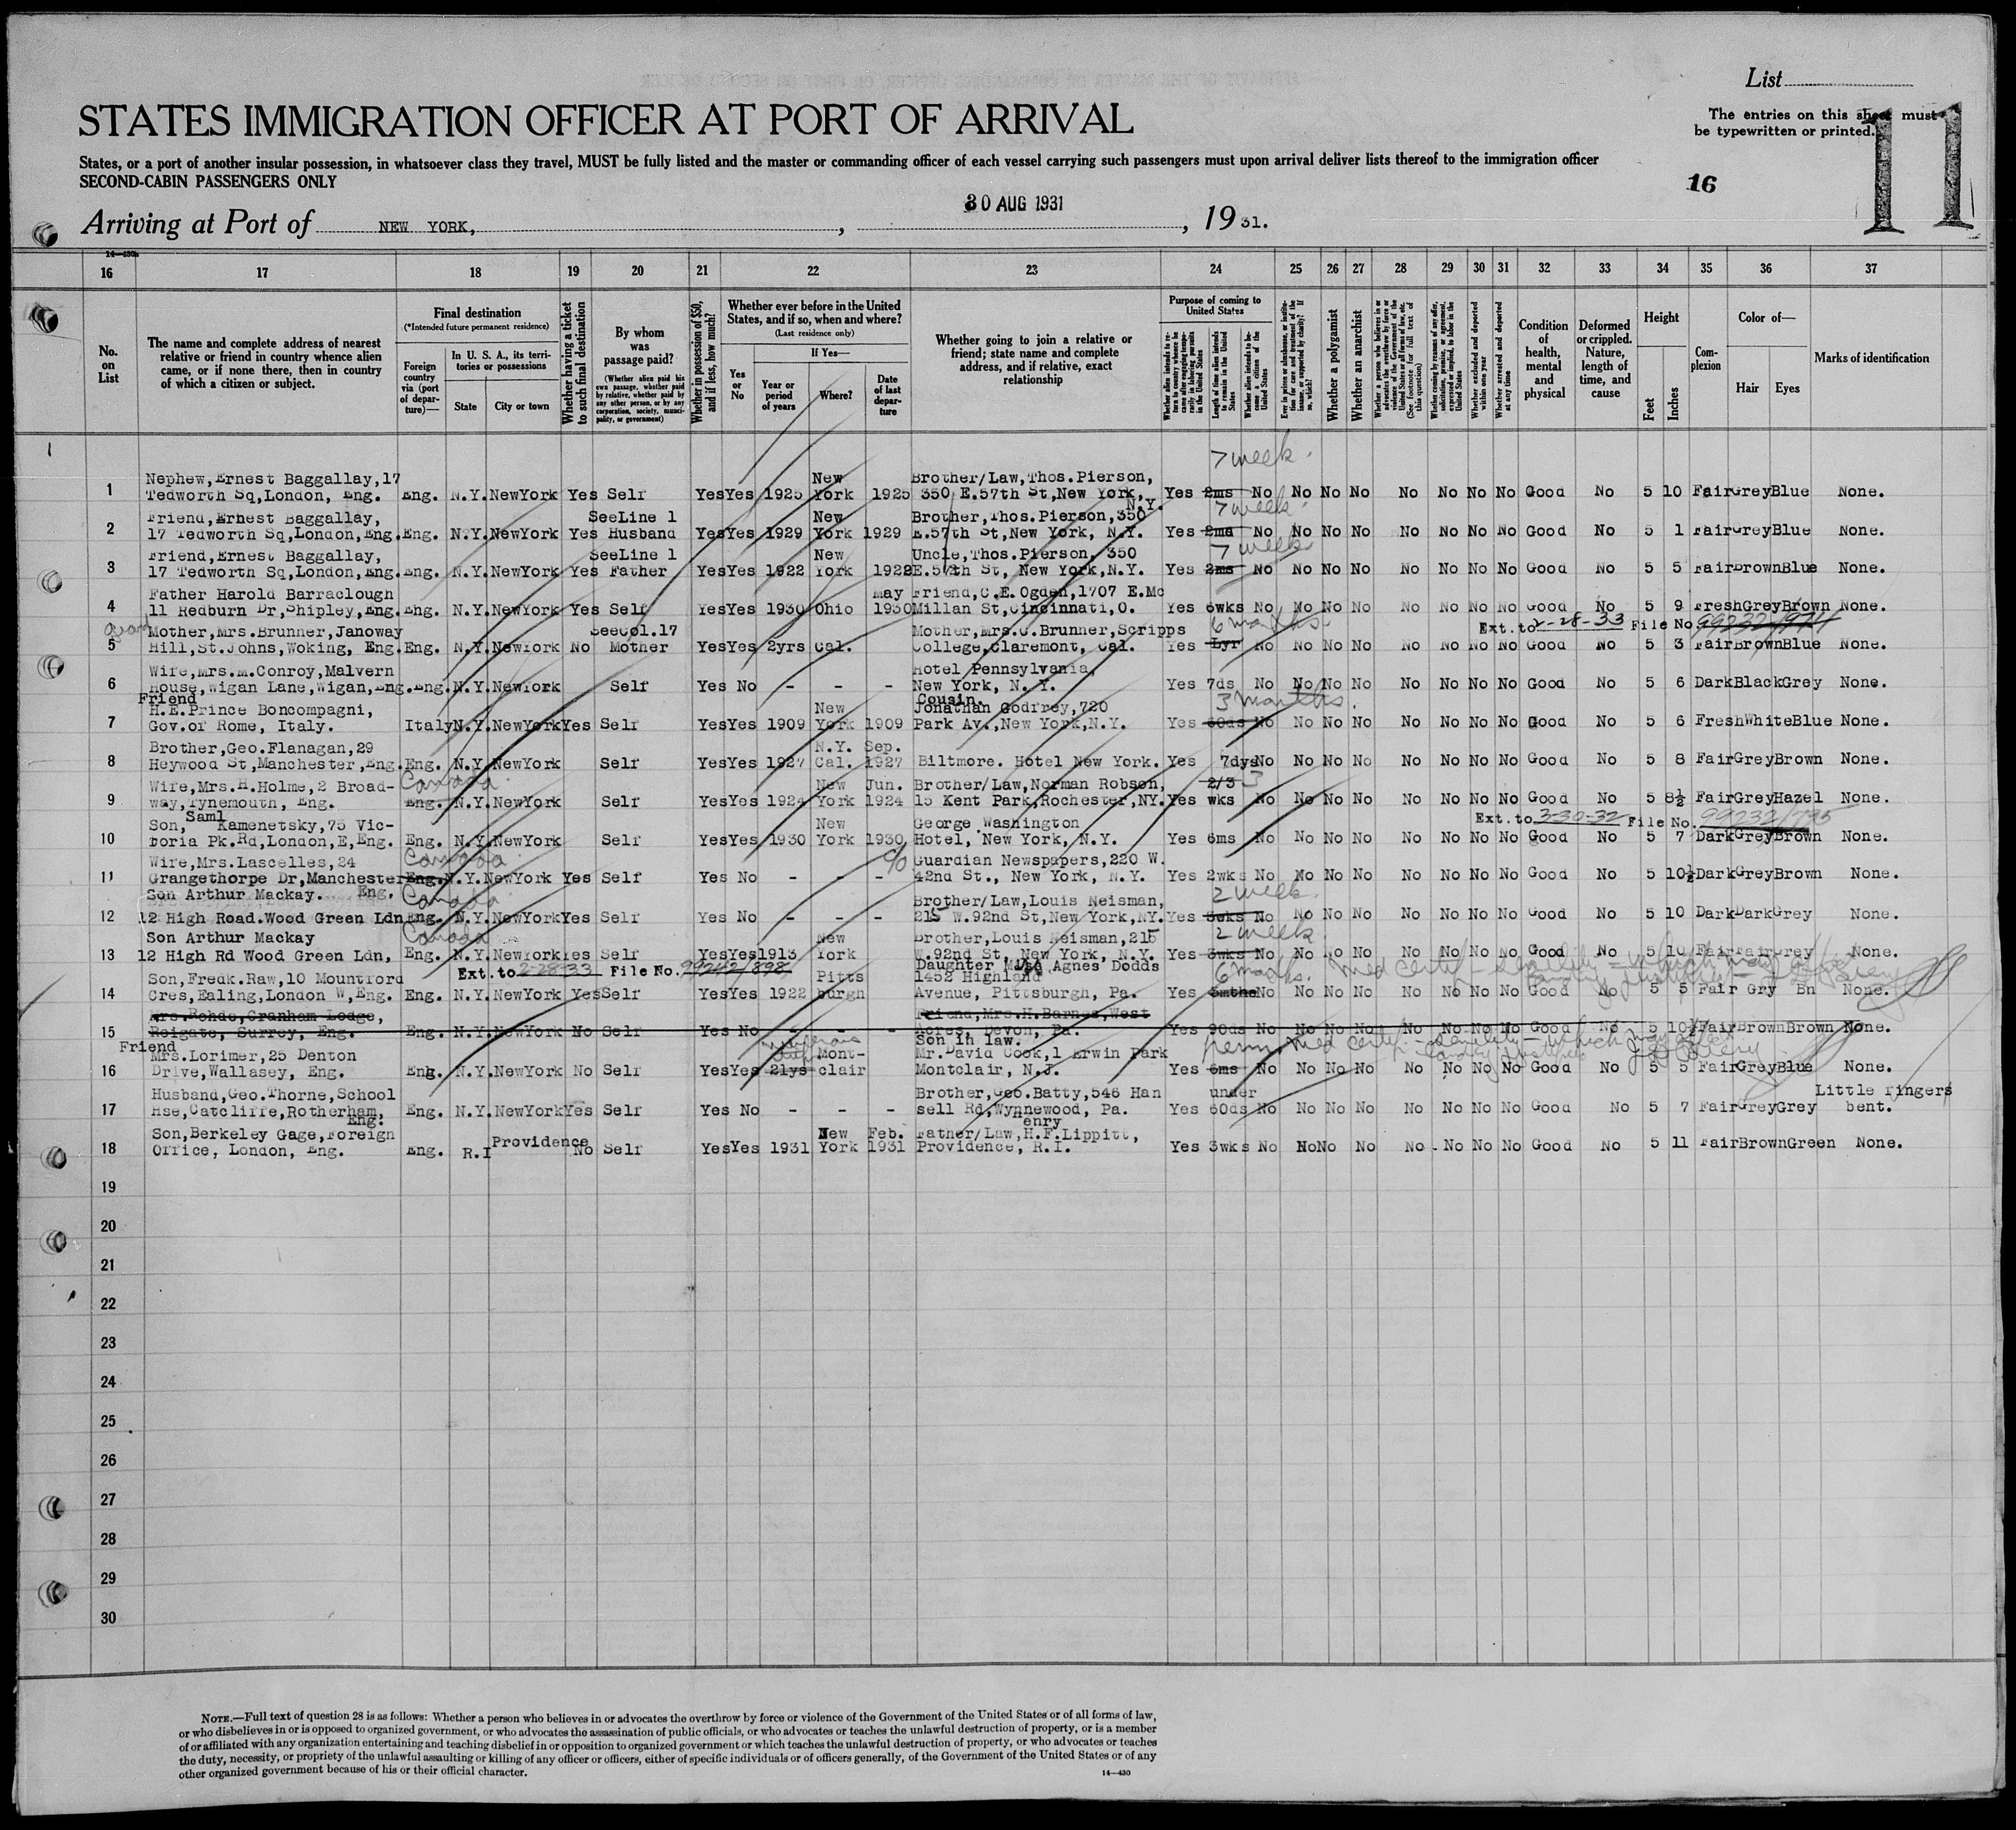 List
The entries on this sheet must
be typewritten or printed.
11
STATES IMMIGRATION OFFICER AT PORT OF ARRIVAL
States, or a port of another insular possession, in whatsoever class they travel, MUST be fully listed and the master or commanding officer of each vessel carrying such passengers must upon arrival deliver lists thereof to the immigration officer
SECOND-CABIN PASSENGERS ONLY
16
30 AUG 1931
Arriving at Port of NEW YORK, , , 1931.
14-430a
16 17 18 19 20 21 22 23 24 25 26 27 28 29 30 31 32 33 34 35 36 37
No. on List
The name and complete address of nearest relative or friend in country whence alien came, or if none there, then in country of which a citizen or subject.
Final destination
(*Intended future permanent residence)
Foreign country via (port of departure)—
In U. S. A., its territories or possessions
State
City or town
Whether having a ticket to such final destination
By whom was passage paid?
(Whether alien paid his own passage, whether paid by relative, whether paid by any other person, or by any corporation, society, municipality, or government)
Whether in possession of $50, and if less, how much?
Whether ever before in the United States, and if so, when and where?
(Last residence only)
Yes or No
If Yes—
Year or period of years
Where?
Date of last departure
Whether going to join a relative or friend; state name and complete address, and if relative, exact relationship
Purpose of coming to United States
Whether alien intends to return to country whence he came after engaging temporarily in laboring pursuits in the United States
Length of time alien intends to remain in the United States
Whether alien intends to become a citizen of the United States
Ever in prison or almshouse, or institution for care and treatment of the insane, or supported by charity? If so, which?
Whether a polygamist
Whether an anarchist
Whether a person who believes in or advocates the overthrow by force or violence of the Government of the United States or all forms of law, etc. (See footnote for full text of this question)
Whether coming by reasons of any offer, solicitation, promise, or agreement, expressed or implied, to labor in the United States
Whether excluded and deported within one year
Whether arrested and deported at any time
Condition of health, mental and physical
Deformed or crippled. Nature, length of time, and cause
Height
Feet
Inches
Complexion
Color of—
Hair
Eyes
Marks of identification
7 week.
Nephew,Ernest Baggallay,17 New Brother/Law,Thos.Pierson,
1 Tedworth Sq,London, Eng. Eng. N.Y. NewYork Yes Self Yes Yes 1925 York 1925 350 E.57th St,New York, N.Y. Yes 2ms No No No No No No No No Good No 5 10 Fair Grey Blue None.
Friend,Ernest Baggallay, SeeLine 1 New Brother,Thos.Pierson,350 7 week.
2 17 Tedworth Sq,London,Eng. Eng. N.Y. NewYork Yes Husband Yes Yes 1929 York 1929 E.57th St,New York, N.Y. Yes 2ms No No No No No No No No Good No 5 1 Fair Grey Blue None.
Friend,Ernest Baggallay, SeeLine 1 New Uncle,Thos.Pierson, 350 7 week
3 17 Tedworth Sq,London,Eng. Eng. N.Y. NewYork Yes Father Yes Yes 1922 York 1922 E.57th St, New York,N.Y. Yes 2ms No No No No No No No No Good No 5 5 Fair Brown Blue None.
Father Harold Barraclough May Friend,C.E.Ogden,1707 E.Mc
4 11 Redburn Dr,Shipley,Eng. Eng. N.Y. NewYork Yes Self Yes Yes 1930 Ohio 1930 Millan St,Cincinnati,O. Yes 6wks No No No No No No No No Good No 5 9 Fresh Grey Brown None.
Mother,Mrs.Brunner,Janoway SeeCol.17 Mother,Mrs.C.Brunner,Scripps 6 months Ext. to 2-28-33 File No. 99232/974
5 Hill,St.Johns,Woking, Eng. Eng. N.Y. NewYork No Mother Yes Yes 2yrs Cal. College,Claremont, Cal. Yes 1yr No No No No No No No No Good No 5 3 Fair Brown Blue None.
Wife,Mrs.M.Conroy,Malvern Hotel Pennsylvania,
6 House,Wigan Lane,Wigan,Eng. Eng. N.Y. NewYork Self Yes No - - - New York, N. Y. Yes 7ds No No No No No No No No Good No 5 6 Dark Black Grey None.
Friend Cousin,
H.E.Prince Boncompagni, New Jonathan Godfrey,720 3 months.
7 Gov.of Rome, Italy. Italy N.Y. NewYork Yes Self Yes Yes 1909 York 1909 Park Av.,New York,N.Y. Yes 60ds No No No No No No No No Good No 5 6 Fresh White Blue None.
Brother,Geo.Flanagan,29 N.Y. Sep.
8 Heywood St,Manchester,Eng. Eng. N.Y. NewYork Self Yes Yes 1927 Cal. 1927 Biltmore. Hotel New York. Yes 7dys No No No No No No No No Good No 5 8 Fair Grey Brown None.
Wife,Mrs.H.Holme,2 Broad- Canada New Jun. Brother/Law,Norman Robson, 2/3 3
9 way,Tynemouth, Eng. Eng. N.Y. NewYork Self Yes Yes 1924 York 1924 15 Kent Park,Rochester,NY. Yes wks No No No No No No No No Good No 5 8½ Fair Grey Hazel None.
Saml Ext. to 3-30-32 File No. 99232/795
Son, Kamenetsky,75 Vic- New George Washington
10 toria Pk.Rd,London,E,Eng. Eng. N.Y. NewYork Self Yes Yes 1930 York 1930 Hotel, New York, N.Y. Yes 6ms No No No No No No No No Good No 5 7 Dark Grey Brown None.
Wife,Mrs.Lascelles,24 Canada c/o Guardian Newspapers,220 W.
11 Grangethorpe Dr,Manchester Eng. Eng. N.Y. NewYork Yes Self Yes No - - - 42nd St., New York, N.Y. Yes 2wks No No No No No No No No Good No 5 10½ Dark Grey Brown None.
Son Arthur Mackay. Canada Brother/Law,Louis Neisman, 2 week
12 12 High Road.Wood Green Ldn Eng. N.Y. NewYork Yes Self Yes No - - - 215 W.92nd St,New York,NY. Yes 3wks No No No No No No No No Good No 5 10 Dark Dark Grey None.
Son Arthur Mackay Canada New Brother,Louis Neisman,215 2 week
13 12 High Rd Wood Green Ldn, Eng. N.Y. NewYork Yes Self Yes Yes 1913 York W.92nd St, New York, N.Y. Yes 3wks No No No No No No No No Good No 5 10 Fair Fair Grey None.
Ext. to 2-28-33 File No. 99242/898
Son,Fredk.Raw,10 Mountford Pitts Daughter Mrs Agnes Dodds 1452 Highland 6 months. Med certif - senility - which may affect
14 Cres,Ealing,London W,Eng. Eng. N.Y. NewYork Yes Self Yes Yes 1922 burgh Avenue, Pittsburgh, Pa. Yes 3mths No No No No No No No No Good No 5 5 Fair Gry Bn None.
Mrs.Rohde,Cranham Lodge, Friend,Mrs.H.Barnes,West
15 Reigate, Surrey, Eng. Eng. N.Y. NewYork No Self Yes No - - - Acres, Devon, Pa. Yes 90ds No No No No No No No No Good No 5 10½ Fair Brown Brown None.
Friend Son in law. Med certif - senility - which may affect
Mrs.Lorimer,25 Denton Mont- Mr.David Cook,1 Erwin Park
16 Drive,Wallasey, Eng. Eng. N.Y. NewYork No Self Yes Yes 21ys clair Montclair, N.J. Yes 6ms No No No No No No No No Good No 5 5 Fair Grey Blue None.
Husband,Geo.Thorne,School Brother,Geo.Batty,546 Han under Little Fingers
17 Hse,Catcliffe,Rotherham, Eng. Eng. N.Y. NewYork Yes Self Yes No - - - sell Rd,Wynnewood, Pa. Yes 60ds No No No No No No No No Good No 5 7 Fair Grey Grey bent.
Son,Berkeley Gage,Foreign Providence New Feb. Father/Law,H.F.Lippitt, enry
18 Office, London, Eng. Eng. R.I No Self Yes Yes 1931 York 1931 Providence, R.I. Yes 3wks No No No No No No No No Good No 5 11 Fair Brown Green None.
19
20
21
22
23
24
25
26
27
28
29
30
NOTE.—Full text of question 28 is as follows: Whether a person who believes in or advocates the overthrow by force or violence of the Government of the United States or of all forms of law,
or who disbelieves in or is opposed to organized government, or who advocates the assassination of public officials, or who advocates or teaches the unlawful destruction of property, or is a member
of or affiliated with any organization entertaining and teaching disbelief in or opposition to organized government or which teaches the unlawful destruction of property, or who advocates or teaches
the duty, necessity, or propriety of the unlawful assaulting or killing of any officer or officers, either of specific individuals or of officers generally, of the Government of the United States or of any
other organized government because of his or their official character.
14-430